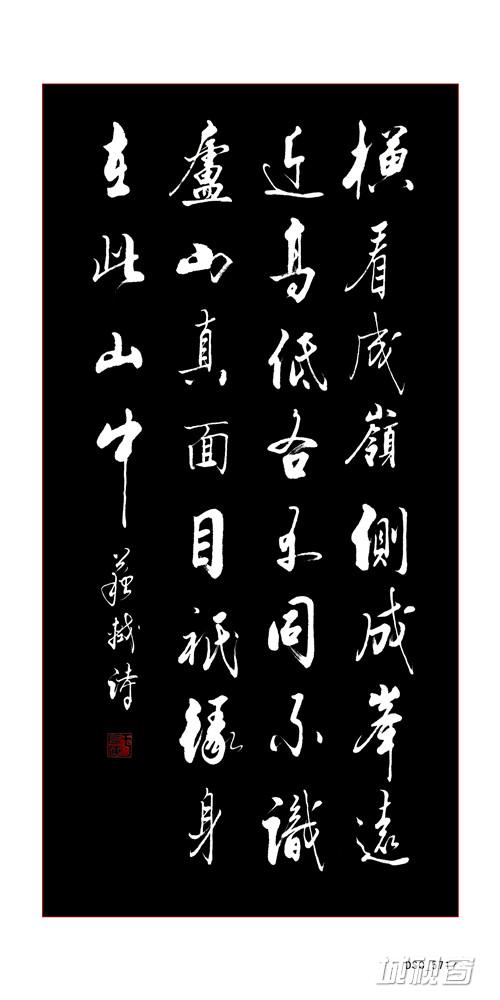 橫看成嶺側成峯遠
近高低各不同不識
廬山真面目祇緣身
在此山中
蘇軾詩
城视窗